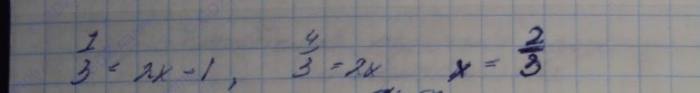 1/3 = 2x - 1, 4/3 = 2x x = 2/3